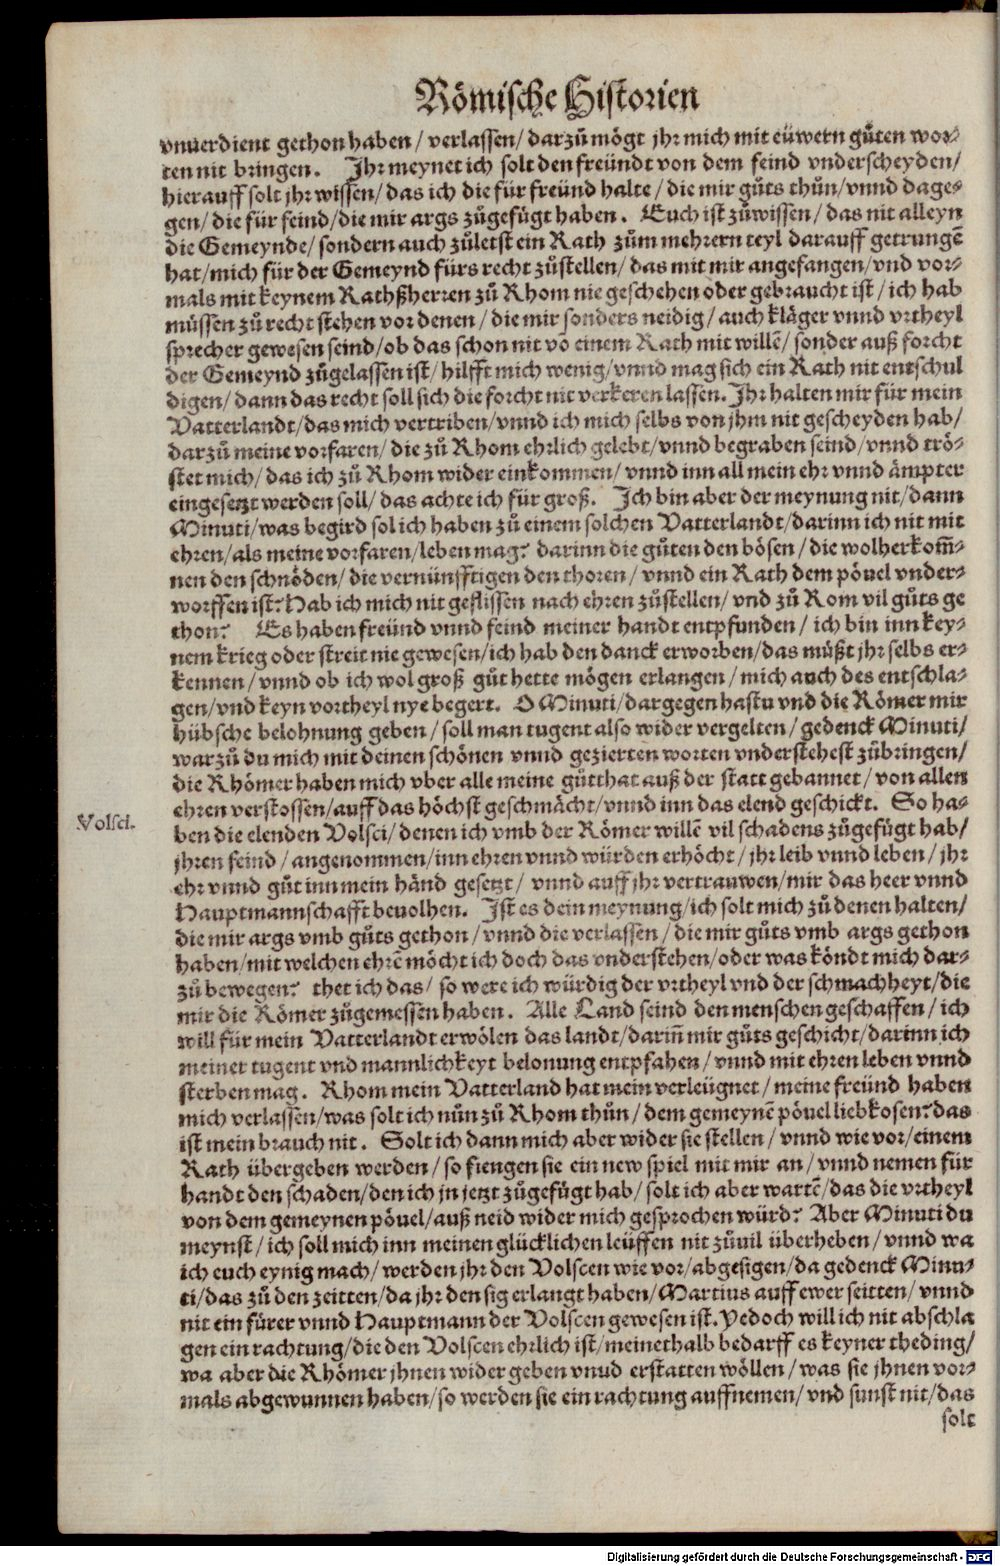 Römische Historien
vnuerdient gethon haben / verlassen / darzů mögt jhr mich mit eüwern gůten wor-
ten nit bringen. Jhr meynet ich solt den freündt von dem feind vnderscheyden /
hierauff solt jhr wissen / das ich die für freünd halte / die mir gůts thůn / vnnd dage-
gen / die für feind / die mir args zůgefügt haben. Euch ist zůwissen / das nit alleyn
die Gemeynde / sondern auch zůletst ein Rath zům mehrern teyl darauff getrungē
hat / mich für der Gemeynd fürs recht zůstellen / das mit mir angefangen / vnd vor-
mals mit keynem Rathßherren zů Rhom nie geschehen oder gebraucht ist / ich hab
müssen zů recht stehen vor denen / die mir sonders neidig / auch kläger vnnd vrtheyl
sprecher gewesen seind / ob das schon nit vō einem Rath mit willē / sonder auß forcht
der Gemeynd zůgelassen ist / hilfft mich wenig / vnnd mag sich ein Rath nit entschul
digen / dann das recht soll sich die forcht nit verkeren lassen. Jhr halten mir für mein
Vatterlandt / das mich vertriben / vnnd ich mich selbs von jhm nit gescheyden hab /
darzů meine vorfaren / die zů Rhom ehrlich gelebt / vnnd begraben seind / vnnd trö-
stet mich / das ich zů Rhom wider einkommen / vnnd inn all mein ehr vnnd ämpter
eingesetzt werden soll / das achte ich für groß. Jch bin aber der meynung nit / dann
Minuti / was begird sol ich haben zů einem solchen Vatterlandt / darinn ich nit mit
ehren / als meine vorfaren / leben mag? darinn die gůten den bösen / die wolherkom̄-
nen den schnöden / die vernünfftigen den thoren / vnnd ein Rath dem pövel vnder-
worffen ist? Hab ich mich nit geflissen nach ehren zůstellen / vnd zů Rom vil gůts ge
thon? Es haben freünd vnnd feind meiner handt entpfunden / ich bin inn key-
nem krieg oder streit nie gewesen / ich hab den danck erworben / das müßt jhr selbs er-
kennen / vnnd ob ich wol groß gůt hette mögen erlangen / mich auch des entschla-
gen / vnd keyn vortheyl nye begert. O Minuti / dargegen hastu vnd die Römer mir
hübsche belohnung geben / soll man tugent also wider vergelten / gedenck Minuti /
warzů du mich mit deinen schönen vnnd gezierten worten vnderstehest zůbringen /
die Rhömer haben mich vber alle meine gůtthat auß der statt gebannet / von allen
ehren verstossen / auff das höchst geschmächt / vnnd inn das elend geschickt. So ha-
Volsci.
ben die elenden Volsci / denen ich vmb der Römer willē vil schadens zůgefügt hab /
jhren feind / angenommen / inn ehren vnnd würden erhöcht / jhr leib vnnd leben / jhr
ehr vnnd gůt inn mein händ gesetzt / vnnd auff jhr vertrauwen / mir das heer vnnd
Hauptmannschafft beuolhen. Jst es dein meynung / ich solt mich zů denen halten /
die mir args vmb gůts gethon / vnnd die verlassen / die mir gůts vmb args gethon
haben / mit welchen ehrē möcht ich doch das vnderstehen / oder was köndt mich dar-
zů bewegen? thet ich das / so were ich würdig der vrtheyl vnd der schmachheyt / die
mir die Römer zůgemessen haben. Alle Land seind den menschen geschaffen / ich
will für mein Vatterlandt erwölen das landt / dariñ mir gůts geschicht / darinn ich
meiner tugent vnd mannlichkeyt belonung entpfahen / vnnd mit ehren leben vnnd
sterben mag. Rhom mein Vatterland hat mein verleügnet / meine freünd haben
mich verlassen / was solt ich nůn zů Rhom thůn / dem gemeynē pövel liebkosen? das
ist mein brauch nit. Solt ich dann mich aber wider sie stellen / vnnd wie vor / einem
Rath übergeben werden / so fiengen sie ein new spiel mit mir an / vnnd nemen für
handt den schaden / den ich jn jetzt zůgefügt hab / solt ich aber wartē / das die vrtheyl
von dem gemeynen pövel / auß neid wider mich gesprochen würd? Aber Minuti du
meynst / ich soll mich inn meinen glücklichen leüffen nit zůuil überheben / vnnd wa
ich euch eynig mach / werden jhr den Volscen wie vor / absigen / da gedenck Minu-
ti / das zů den zeitten / da jhr den sig erlangt haben / Martius auff ewer seitten / vnnd
nit ein fürer vnnd Hauptmann der Volscen gewesen ist. Yedoch will ich nit abschla
gen ein rachtung / die den Volscen ehrlich ist / meinethalb bedarff es keyner theding /
wa aber die Rhömer jhnen wider geben vnud erstatten wöllen / was sie jhnen vor-
mals abgewunnen haben / so werden sie ein rachtung auffnemen / vnd sunst nit / das
solt
Digitalisierung gefördert durch die Deutsche Forschungsgemeinschaft - DFG